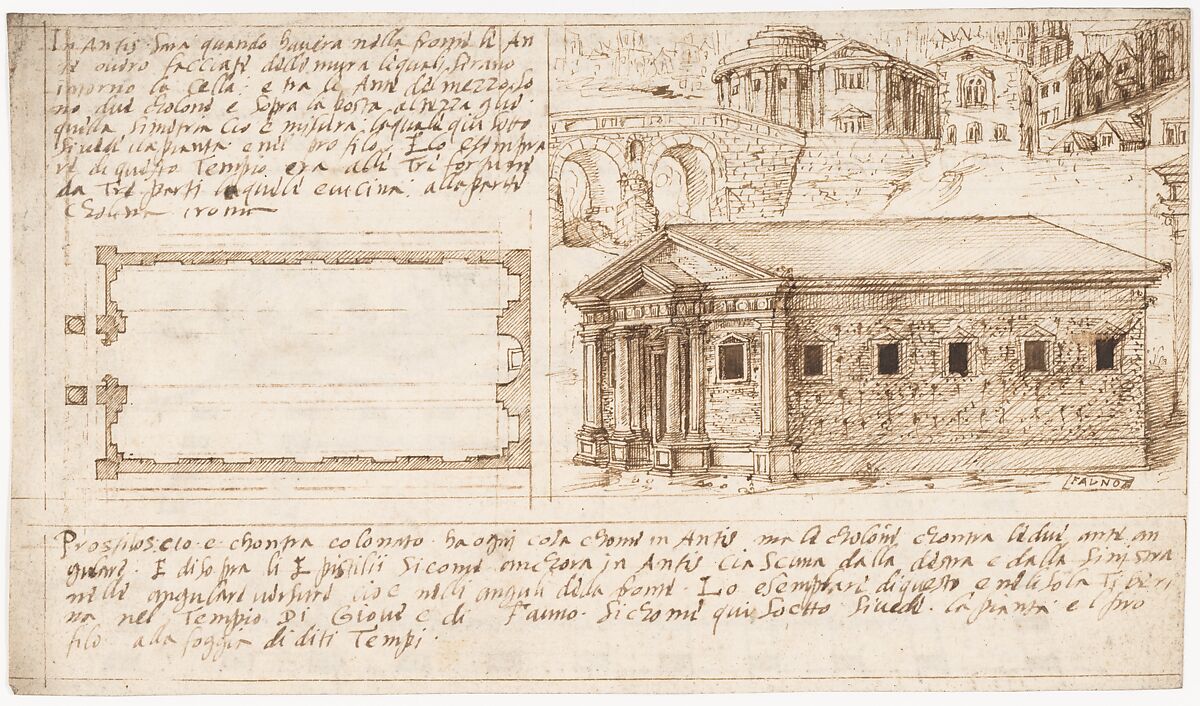 In Antis sara quando havera nella fronte le An
te overo facciate delle mura lequali serano
intorno la Cella, e tra le Ante del mezzo so
no due cholone e sopra la posta alteza que
questa Simetria cio e misura laquale qui sotto
si vede la pianta e nel profilo. Lo esempra
re di questo Tempio era alle Tre fortune
da Tre parti laquele e vicina alla parte
Cholina
Prostilos. cio e chontra colonato ha ogni cosa chome in Antis ma le cholone chontra le due ante an
gulare. E di sopra li E pistilii sicome anchora in Antis Cia scuna dalla destra e dalla Sinistra
nelle angulare versure cio e nelli anguli della fronte. Lo esemprare di questo e nelisola Tiberi
na nel Tempio Di Giove e di Fauno. Sichome qui Sotto Sivede la pianta e l pro
filo alla foggia di diti Tempi.
FAUNO